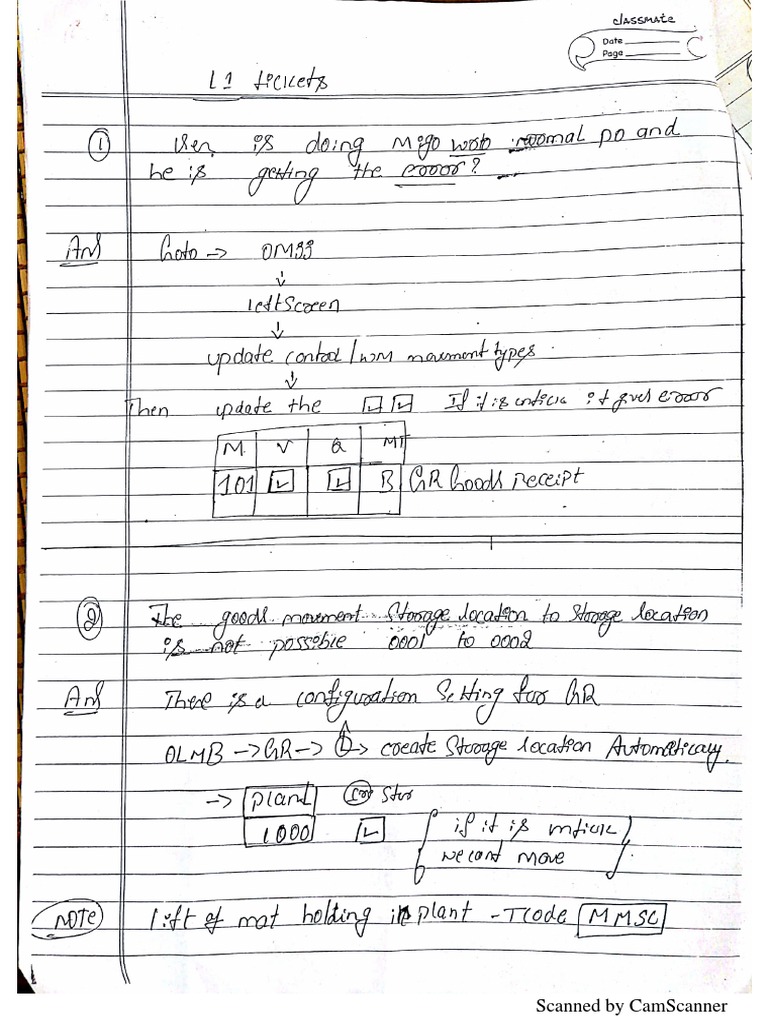 classmate
Date
Page
L1 tickets
① User is doing Migo w.r.to normal po and
he is getting the error?
Ans Goto → OMJJ
↓
left Screen
↓
update control / WM movement types
↓
Then update the ☑ ☑ If it is untick it gives error
M V Q MT
101 ☑ ☑ B GR Goods receipt
② The goods movement Storage location to Storage location
is not possible 0001 to 0002
Ans There is a configuration Setting for GR
OLMB → GR → → create Storage location Automatically.
→ plant
1000 ☑ if it is untick
we cant move
NOTE List of mat holding in plant - Tcode MMSC
Scanned by CamScanner